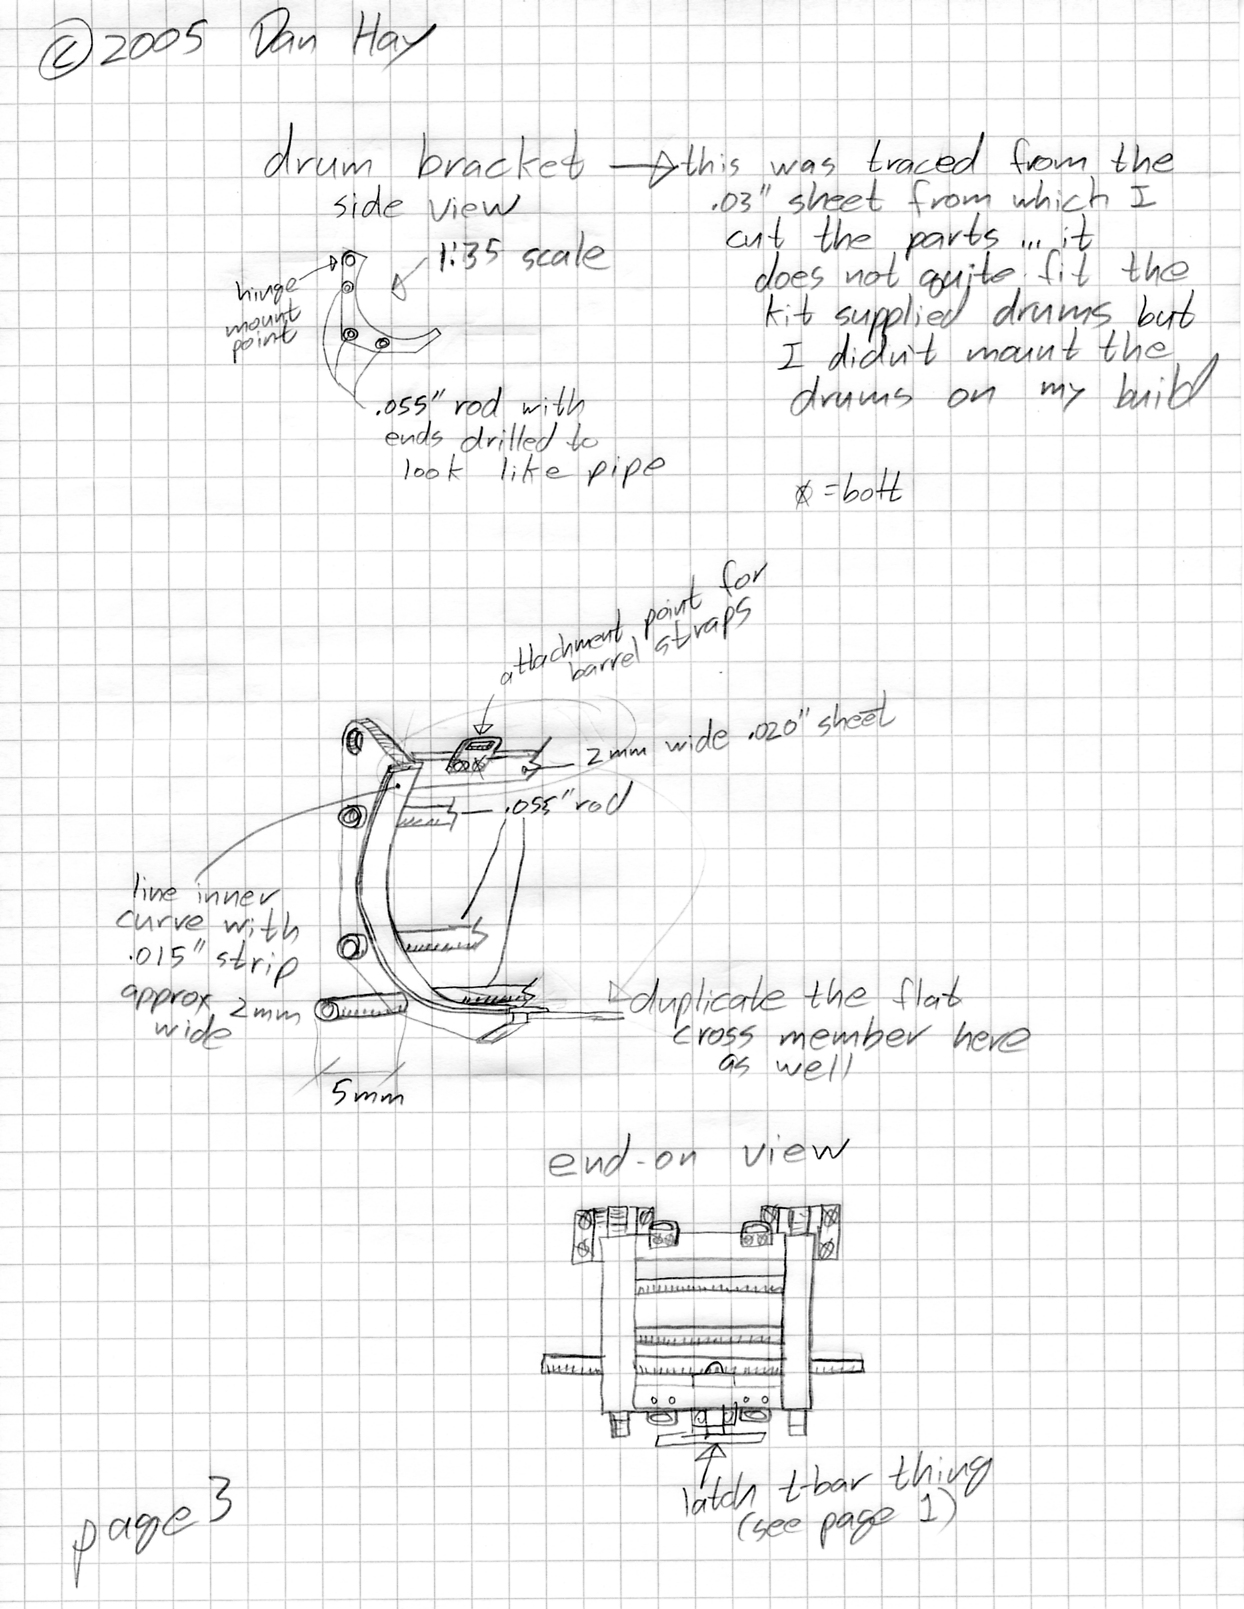 © 2005 Dan Hay
drum bracket
side view
1:35 scale
hinge
mount
point
.055" rod with
ends drilled to
look like pipe
this was traced from the
.03" sheet from which I
cut the parts ... it
does not quite fit the
kit supplied drums but
I didn't mount the
drums on my build
= bolt
attachment point for
barrel straps
2mm wide .020" sheet
.055" rod
line inner
curve with
.015" strip
approx 2mm
wide
5mm
duplicate the flat
cross member here
as well
end-on view
latch t-bar thing
(see page 1)
page 3